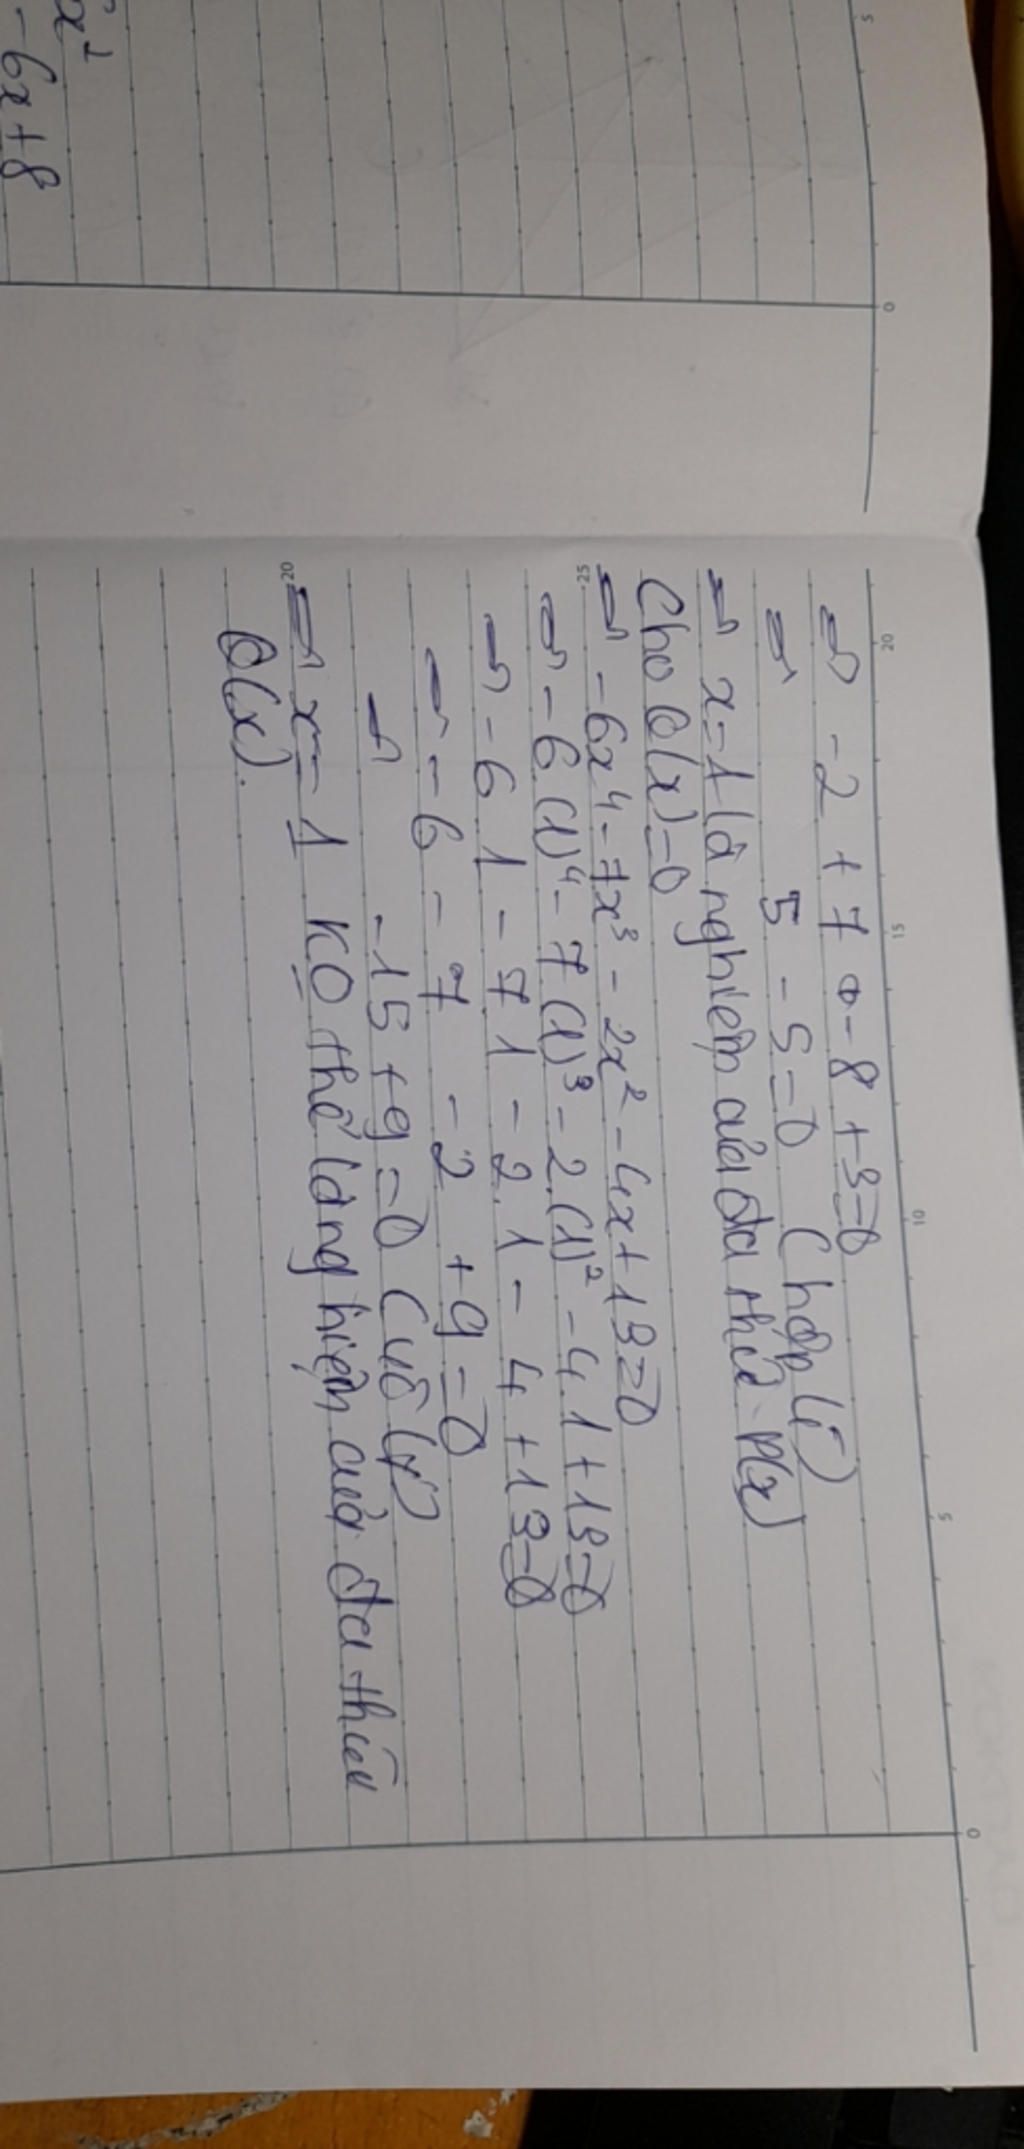 x²
-6x+8
⇒ -2 + 7 - 8 + 3 = 0
⇒ 5 - 5 = 0 (hợp lí)
⇒ x = 1 là nghiệm của đa thức P(x)
Cho Q(x) = 0
⇒ -6x⁴ - 7x³ - 2x² - 4x + 13 = 0
⇒ -6.(1)⁴ - 7(1)³ - 2.(1)² - 4.1 + 13 = 0
⇒ -6.1 - 7.1 - 2.1 - 4 + 13 = 0
⇒ -6 - 7 - 2 + 9 = 0
⇒ -15 + 9 = 0 (vô lý)
⇒ x = 1 KO thể là nghiệm của đa thức
Q(x).
5
0
20
15
10
5
0
25
20